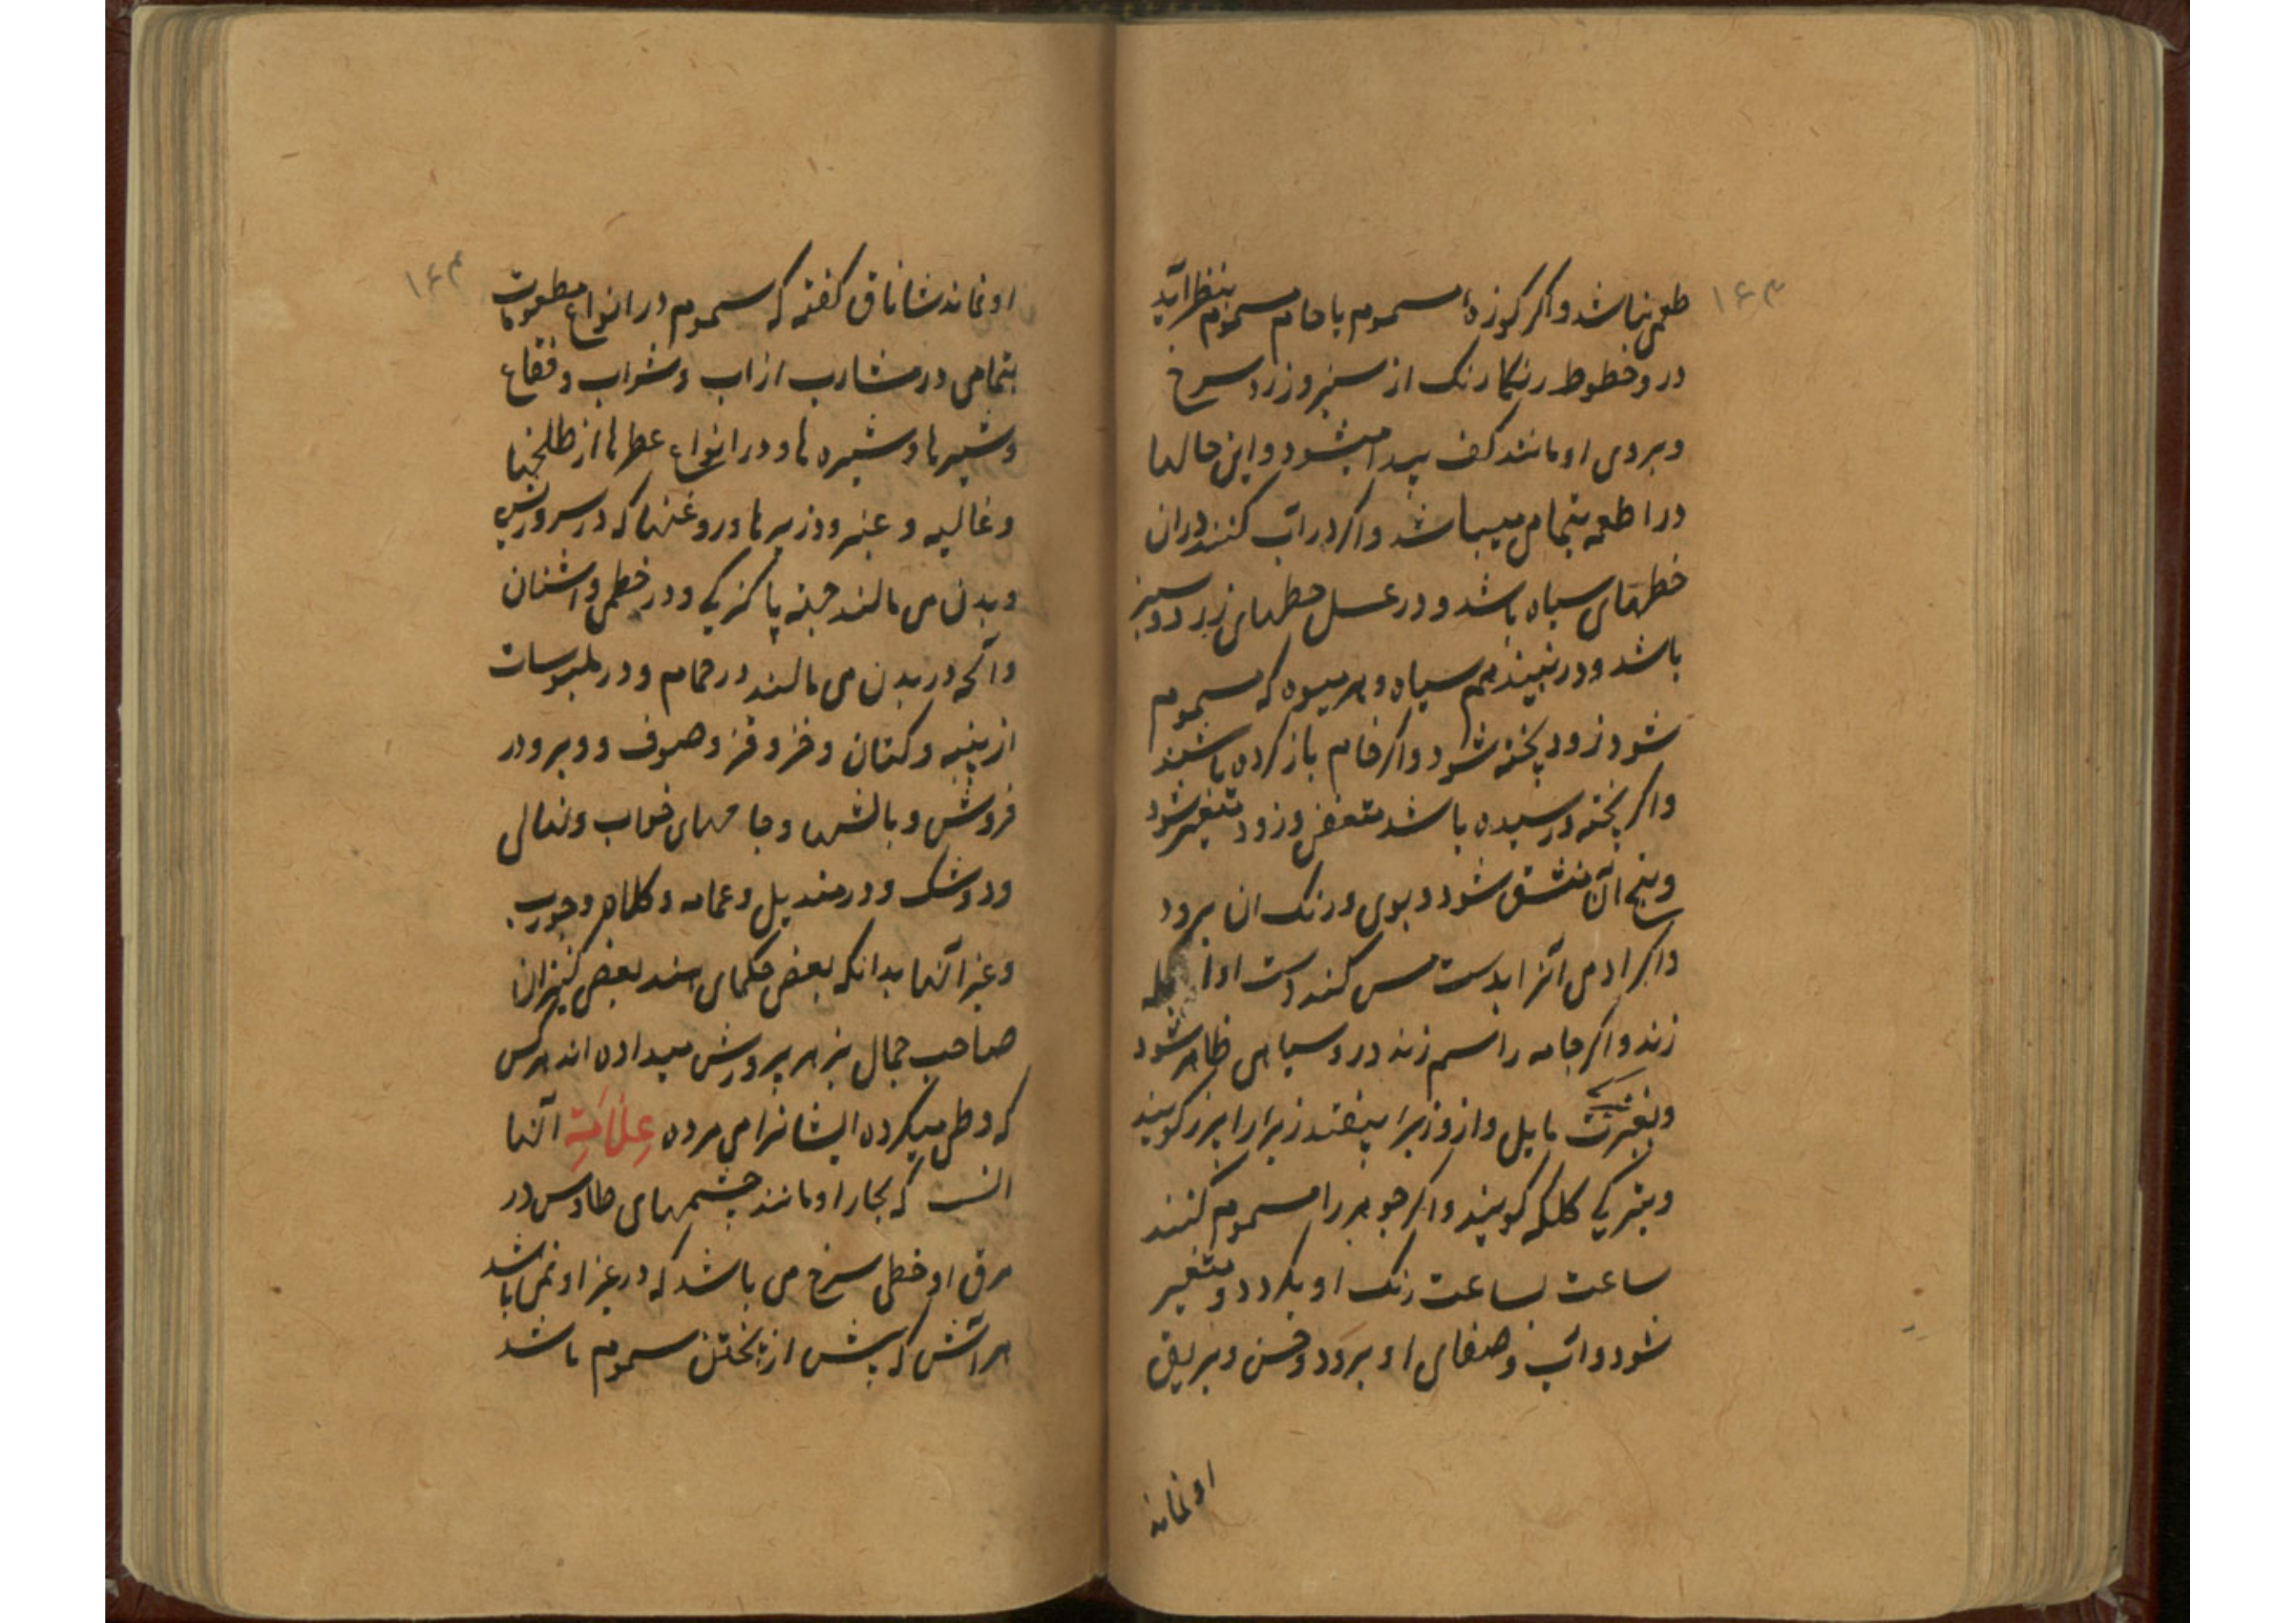 ۱۶۳
طعمی نباشد و اکر کوزهٔ مسموم یا جام مسموم بنظر آید
درو خطوط رنکارنک از سبز و زرد سرخ
و بروی او مانند کف پیدا میشود و این حالها
در اطعمه بتمامی میباشد و اکر در اّب کنند دران
خطهای سیاه باشد و در عسل خطهای زرد و سبز
باشد و در نبیذ هم سیاه و هر میوه که مسموم
شود زود پخته شود و اکر خام باز کرده باشند
و اکر پخته و رسیده باشد متعفن و زود متغیر شود
و بیخ آن منشق شود و بوی و رنک ان برود
و اکر ادمی آنرا بدست مس کند دست او
زند و اکر جامه را سم زند درو سیاهی ظاهر شود
مایل و ازو زبرا بیفتد زبرا را پرز کویند
و بترکی کلکه کویند و اکر جوهر را مسموم کنند
ساعت بساعت رنک او بکردد و متغیر
شود و آب و صفای او برود و حسن و بریق
او نماند
۱۶۴
او نماند شاناق کفته که سموم در انواع مطعومات
بتمامی در مشارب از اب و شراب و فقاع
و شیرها و شیره ها و در انواع عطرها از طلخها
و غالیه و عنبر و ذریرها و روغنها که در سر و ریش
و بدن می مالند جهة پاکیزکی و در خطمی و اشنان
و آنچه در بدن می مالند در حمام و در ملبوسات
از پنبه و کتان و خز و قز و صوف و وبر و در
فروش و بالشها و جامهای خواب و نهالی
و دوشک و در مندیل و عمامه و کلاه و جورب
و غیر آنها بدانکه بعض حکمای هند بعض کنیزان
صاحب جمال بزهر پرورش میداده اند هر کس
که وطی میکرده ایشانرا می مرده عِلاَمَتِ آنها
انست که بخار او مانند چشمهای طاوس در
مرق او خطی سرخ می باشد که در غیر او نمی باشد
هر آتش که پیش از پختن مسموم باشد